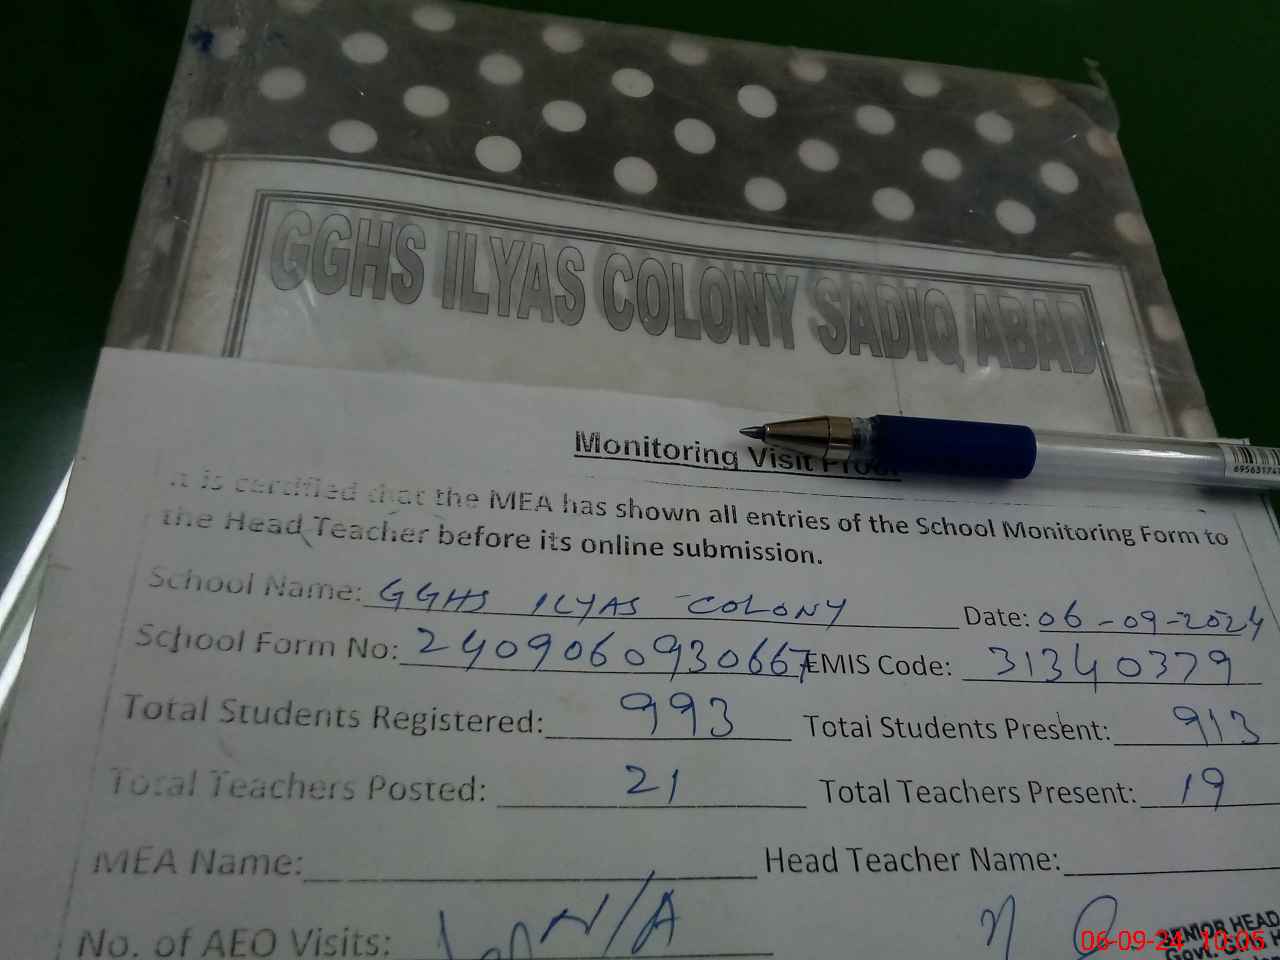 GGHS ILYAS COLONY SADIQ ABAD
Monitoring Visit Proof
It is certified that the MEA has shown all entries of the School Monitoring Form to
the Head Teacher before its online submission.
School Name: GGHS ILYAS COLONY Date: 06-09-2024
School Form No: 2409060930667 EMIS Code: 31340379
Total Students Registered: 993 Total Students Present: 913
Total Teachers Posted: 21 Total Teachers Present: 19
MEA Name: Head Teacher Name:
No. of AEO Visits: N/A
SENIOR HEAD
06-09-24 10:05